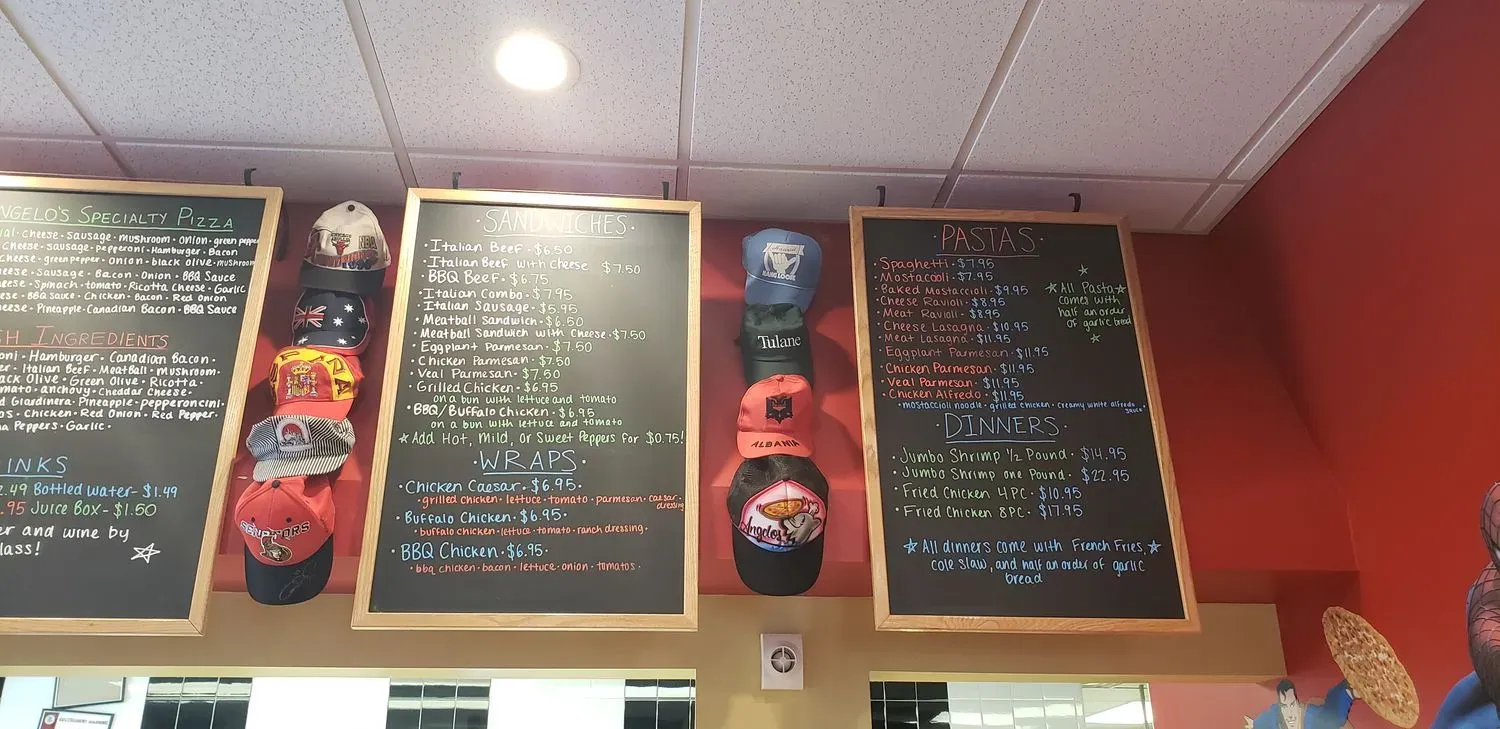 NGELO'S SPECIALTY PIZZA
ial · cheese · sausage · mushroom · onion · green pepper
cheese · sausage · pepperoni · Hamburger · Bacon
cheese · green pepper · onion · black olive · mushroom
eese · Sausage · Bacon · Onion · BBQ Sauce
eese · Spinach · tomato · Ricotta Cheese · Garlic
ese · BBQ sauce · Chicken · Bacon · Red Onion
ese · Pineapple · Canadian Bacon · BBQ Sauce
SH INGREDIENTS
oni · Hamburger · Canadian Bacon ·
er · Italian Beef · MeatBall · mushroom ·
ack Olive · Green Olive · Ricotta ·
mato · anchovy · Cheddar Cheese ·
d Giardinera · Pineapple · pepperoncini ·
os · Chicken · Red Onion · Red Pepper ·
na Peppers · Garlic ·
INKS
2.49 Bottled water - $1.49
.95 Juice Box - $1.50
er and wine by
lass!
NBA
SENATORS
· SANDWICHES ·
· Italian Beef · $6.50
· Italian Beef with Cheese $7.50
· BBQ Beef · $6.75
· Italian Combo · $7.95
· Italian Sausage · $5.95
· Meatball Sandwich · $6.50
· Meatball Sandwich with Cheese · $7.50
· Eggplant Parmesan · $7.50
· Chicken Parmesan · $7.50
· Veal Parmesan · $7.50
· Grilled Chicken · $6.95
on a bun with lettuce and tomato
· BBQ/Buffalo Chicken · $6.95
on a bun with lettuce and tomato
☆ Add Hot, Mild, or Sweet Peppers for $0.75!
· WRAPS ·
· Chicken Caesar · $6.95 ·
· grilled chicken · lettuce · tomato · parmesan · caesar ·
dressing
· Buffalo Chicken · $6.95 ·
· buffalo chicken · lettuce · tomato · ranch dressing ·
· BBQ Chicken · $6.95 ·
· bbq chicken · bacon · lettuce · onion · tomatos ·
HANG LOOSE
Tulane
ALBANIA
Angelos
· PASTAS ·
· Spaghetti · $7.95
· Mostaccoli · $7.95
· Baked Mostaccioli · $9.95
· Cheese Ravioli · $8.95
· Meat Ravioli · $8.95
· Cheese Lasagna · $10.95
· Meat Lasagna · $11.95
· Eggplant Parmesan · $11.95
· Chicken Parmesan · $11.95
· Veal Parmesan · $11.95
· Chicken Alfredo · $11.95
· mostaccioli noodle · grilled chicken · creamy white alfredo
sauce
☆ All Pasta ☆
comes with
half an order
of garlic bread
· DINNERS ·
· Jumbo Shrimp 1/2 Pound · $14.95
· Jumbo Shrimp one Pound · $22.95
· Fried Chicken 4 PC · $10.95
· Fried Chicken 8 PC · $17.95
☆ All dinners come with French Fries, ☆
cole slaw, and half an order of garlic
bread